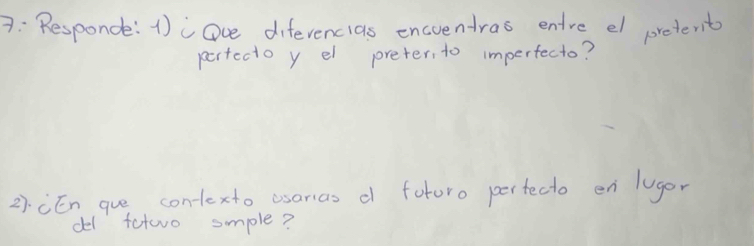 7.- Responde: 1) ¿Que diferencias encuentras entre el preterito
perfecto y el preterito imperfecto?
2). ¿En que contexto usarias el futuro perfecto en lugar
del futuro simple?